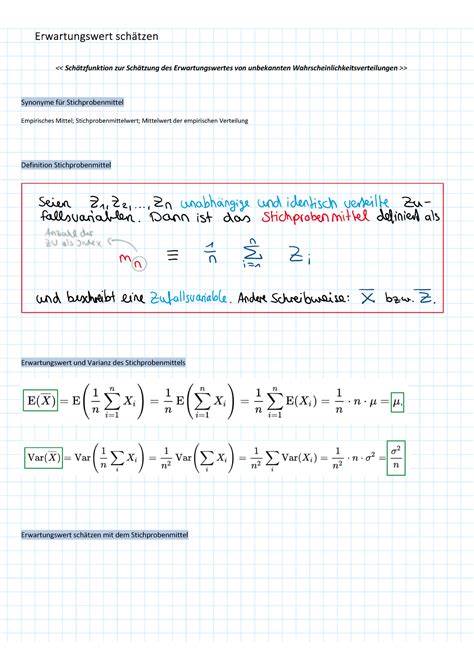 Erwartungswert schätzen
<< Schätzfunktion zur Schätzung des Erwartungswertes von unbekannten Wahrscheinlichkeitsverteilungen >>
Synonyme für Stichprobenmittel
Empirisches Mittel; Stichprobenmittelwert; Mittelwert der empirischen Verteilung
Definition Stichprobenmittel
Seien Z₁, Z₂, ..., Zn unabhängige und identisch verteilte Zu-
fallsvariablen. Dann ist das Stichprobenmittel definiert als
Anzahl der
ZV als Index
mₙ ≡ 1/n ∑_{i=1}^{n} Z_i
und beschreibt eine Zufallsvariable. Andere Schreibweise: X̅ bzw. Z̅.
Erwartungswert und Varianz des Stichprobenmittels
E(X̅) = E(1/n ∑_{i=1}^{n} X_i) = 1/n E(∑_{i=1}^{n} X_i) = 1/n ∑_{i=1}^{n} E(X_i) = 1/n · n · μ = μ,
Var(X̅) = Var(1/n ∑_i X_i) = 1/n² Var(∑_i X_i) = 1/n² ∑_i Var(X_i) = 1/n² · n · σ² = σ²/n
Erwartungswert schätzen mit dem Stichprobenmittel